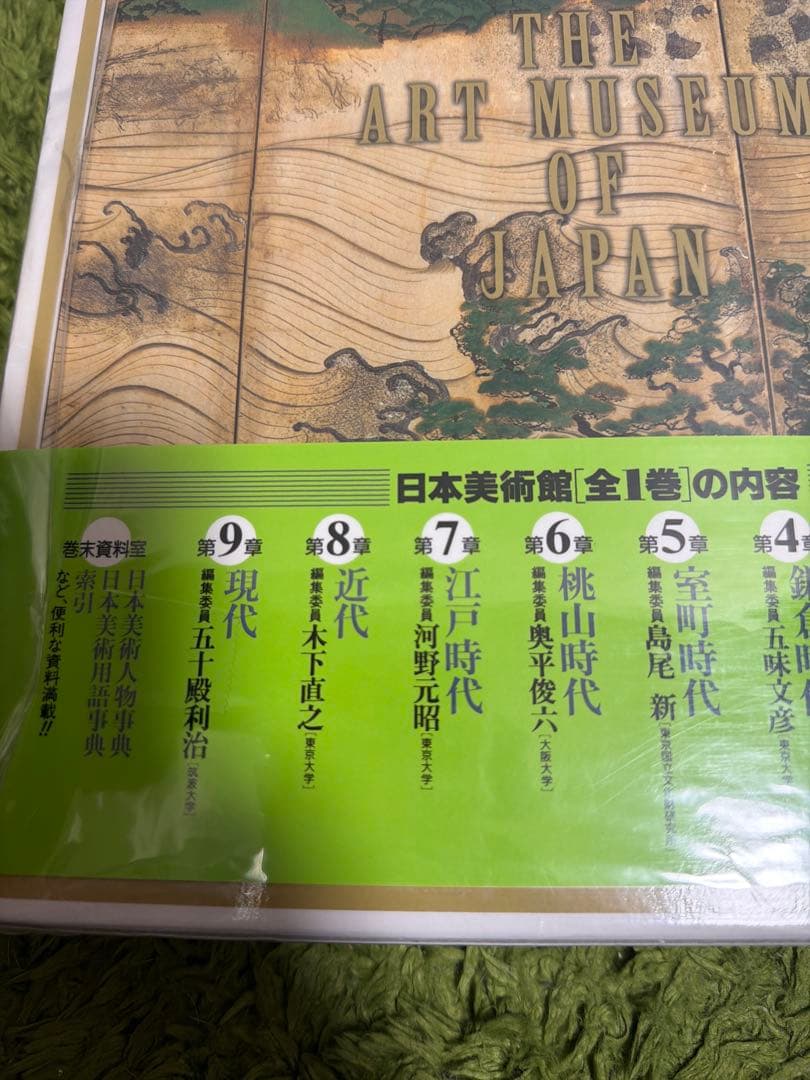 THE
ART MUSEUM
OF
JAPAN
日本美術館[全1巻]の内容
第4章
鎌倉時代
編集委員 五味文彦[東京大学]
第5章
室町時代
編集委員 島尾 新[東京国立文化財研究所]
第6章
桃山時代
編集委員 奥平俊六[大阪大学]
第7章
江戸時代
編集委員 河野元昭[東京大学]
第8章
近代
編集委員 木下直之[東京大学]
第9章
現代
編集委員 五十殿利治[筑波大学]
巻末資料室
日本美術人物事典
日本美術用語事典
索引
など、便利な資料満載!!